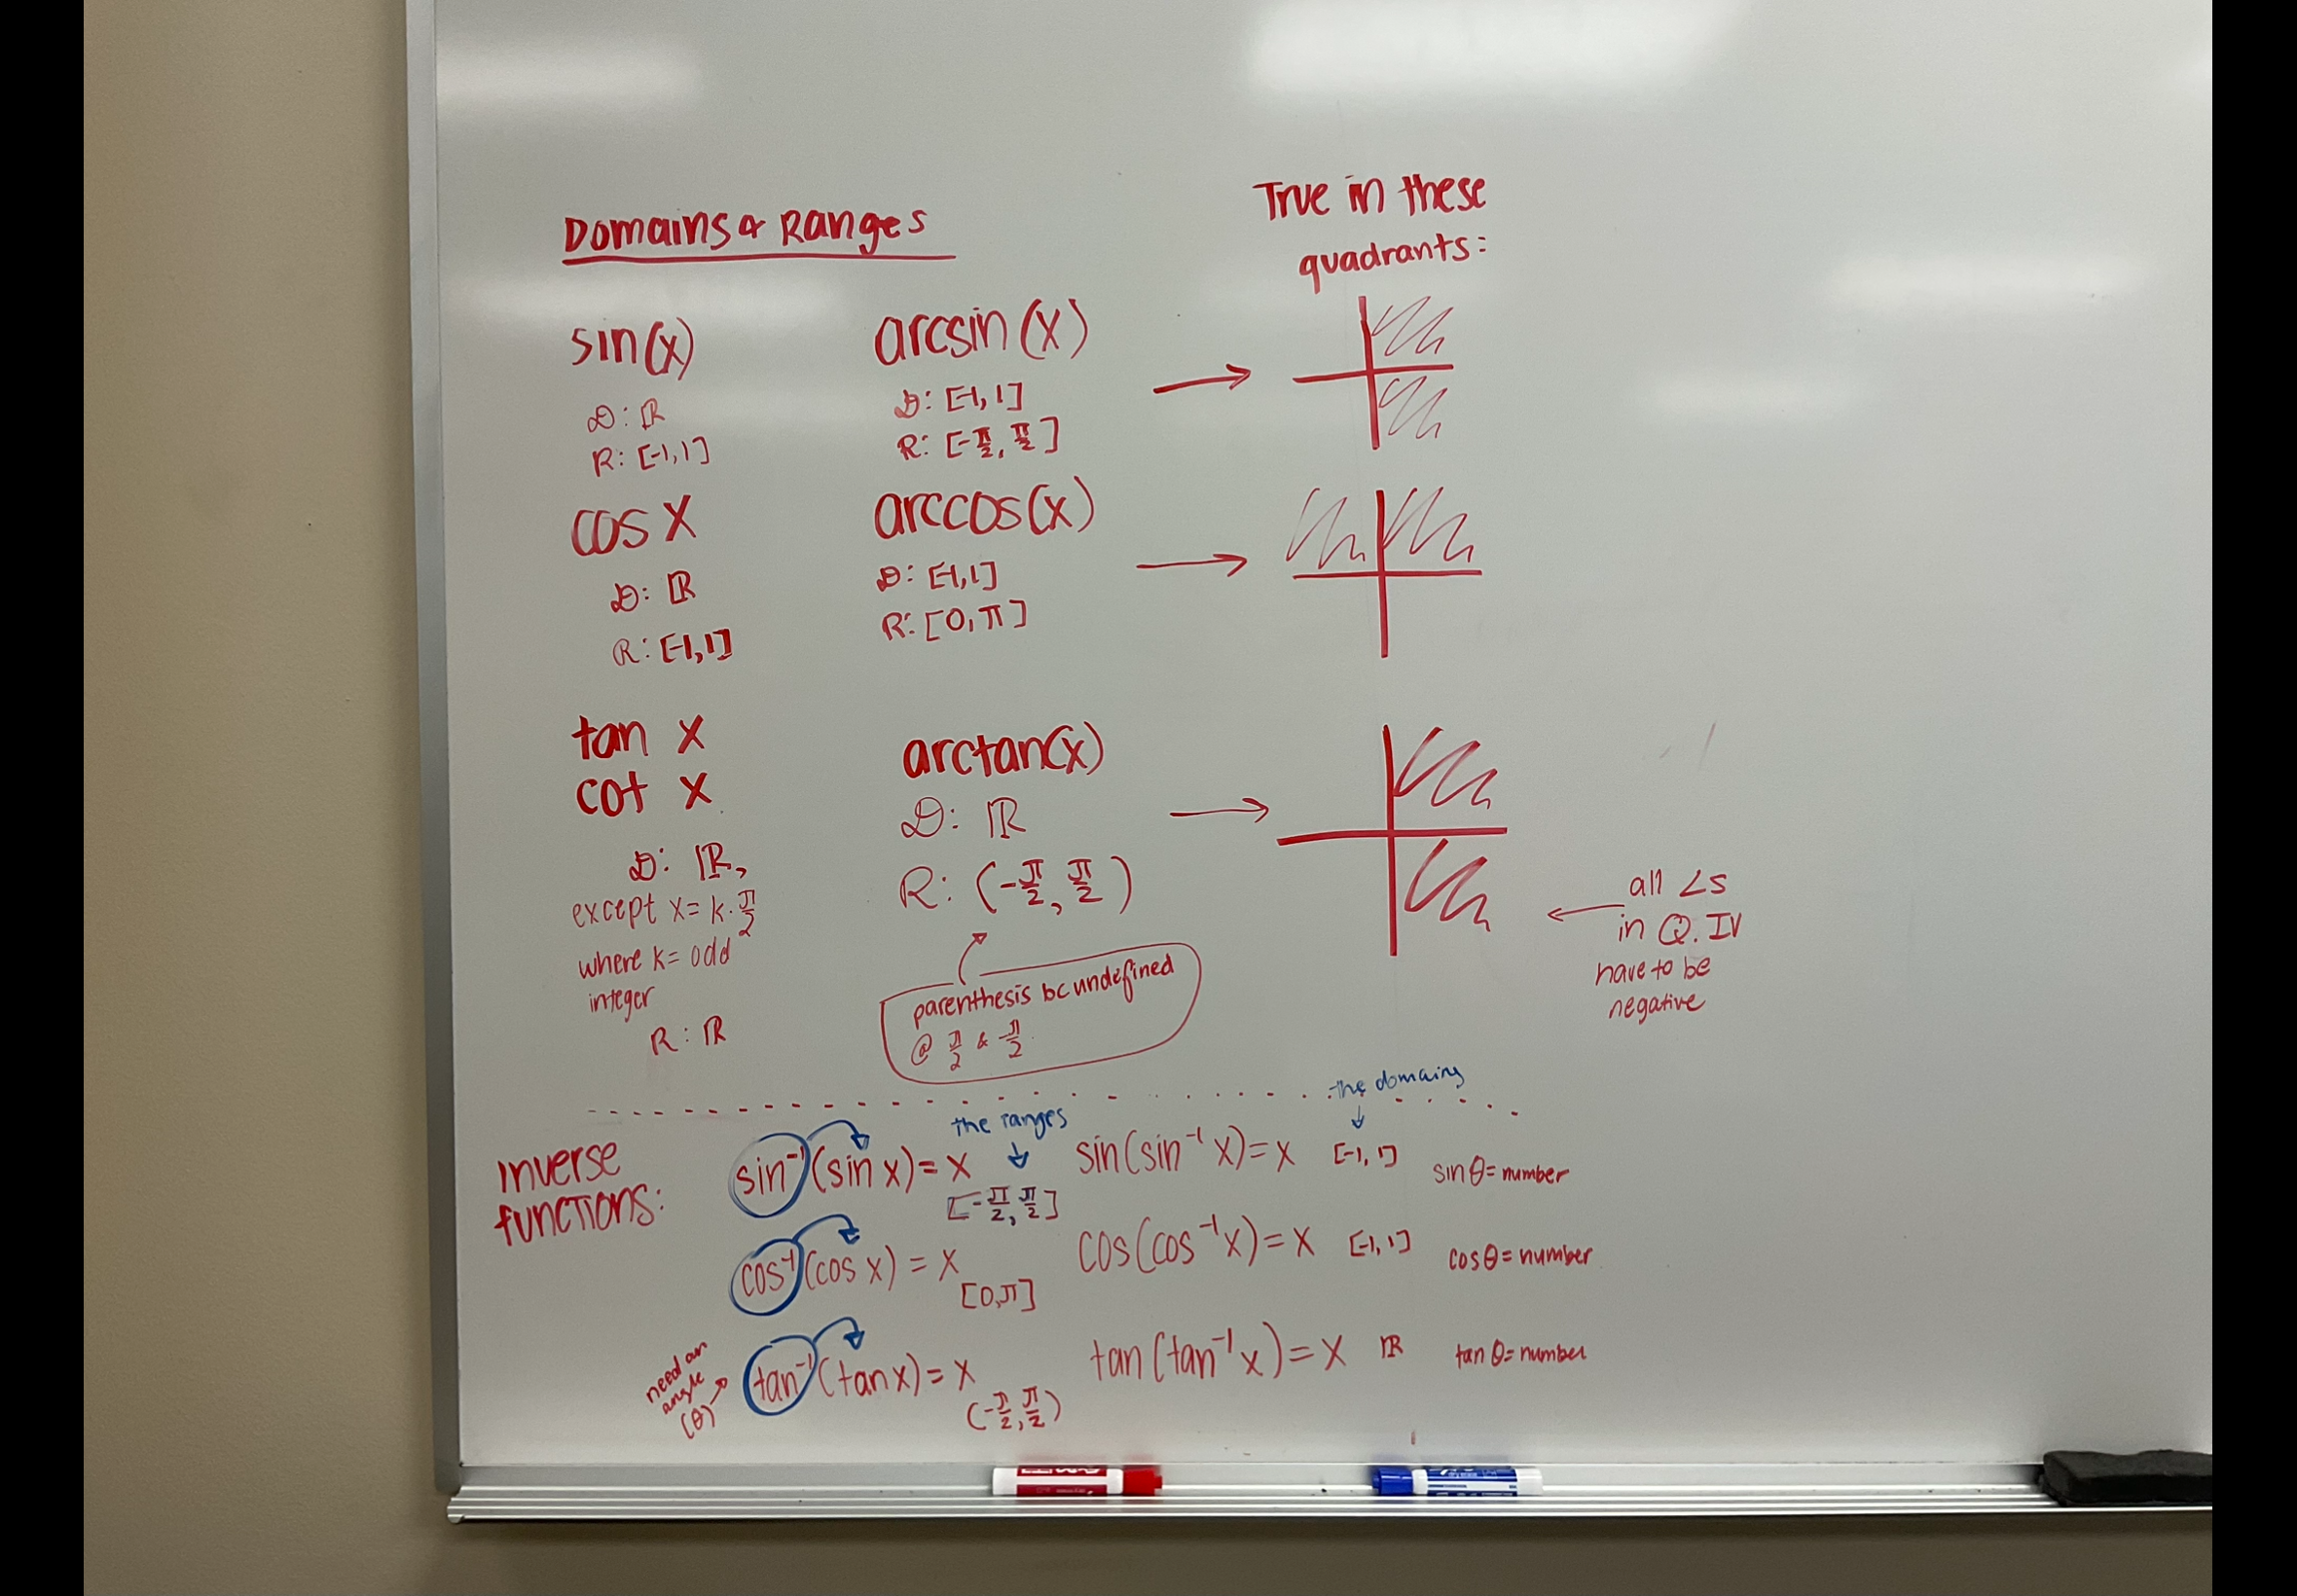 Domains & Ranges
True in these
quadrants:
sin(x)
D: ℝ
R: [-1,1]
arcsin(x)
D: [-1,1]
R: [-π/2, π/2]
cos x
D: ℝ
R: [-1,1]
arccos(x)
D: [-1,1]
R: [0,π]
tan x
cot x
D: ℝ,
except x=k·π/2
where k= odd
integer
R: ℝ
arctan(x)
D: ℝ
R: (-π/2, π/2)
parenthesis bc undefined
@ π/2 & -π/2
all ∠s
in Q. IV
have to be
negative
the ranges
the domains
Inverse
functions:
sin⁻¹(sin x)= x
[-π/2, π/2]
sin(sin⁻¹ x)= x [-1,1] sinθ=number
cos⁻¹(cos x) = x
[0,π]
cos(cos⁻¹x)= x [-1,1] cosθ=number
need an
angle
(θ)
tan⁻¹(tan x)= x
(-π/2, π/2)
tan(tan⁻¹x)= x ℝ tan θ=number